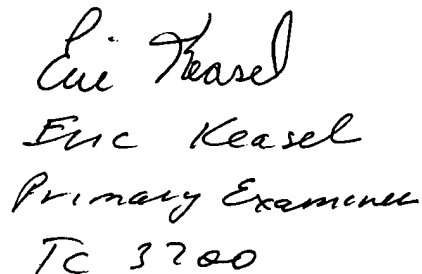 Eric Keasel
Eric Keasel
Primary Examiner
TC 3700